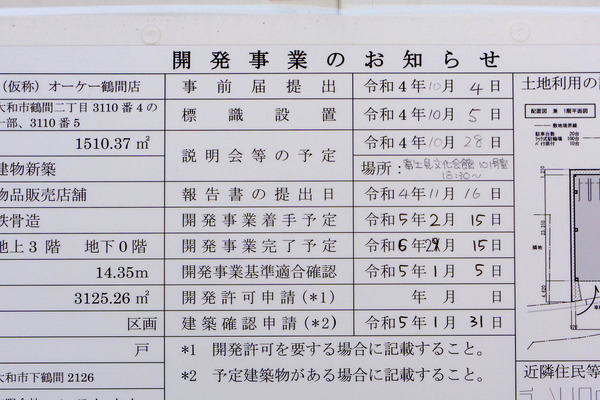 開発事業のお知らせ
(仮称) オーケー鶴間店
大和市鶴間二丁目 3110 番 4 の
一部、3110 番 5
1510.37 ㎡
建物新築
物品販売店舗
鉄骨造
地上 3 階 地下 0 階
14.35m
3125.26 ㎡
区画
戸
大和市下鶴間 2126
事前届提出 令和 4 年 10 月 4 日
標識設置 令和 4 年 10 月 5 日
説明会等の予定 令和 4 年 10 月 28 日
場所: 富士見文化会館 101号室
18:30〜
報告書の提出日 令和 4 年 11 月 16 日
開発事業着手予定 令和 5 年 2 月 15 日
開発事業完了予定 令和 6 年 2 月 15 日
開発事業基準適合確認 令和 5 年 1 月 5 日
開発許可申請 (*1) 年 月 日
建築確認申請 (*2) 令和 5 年 1 月 31 日
*1 開発許可を要する場合に記載すること。
*2 予定建築物がある場合に記載すること。
土地利用の
配置図 兼 1階平面図
敷地境界線
駐車台数 20台
ラック式駐輪場 100台
バイク置場 10台
隣地
近隣住民等